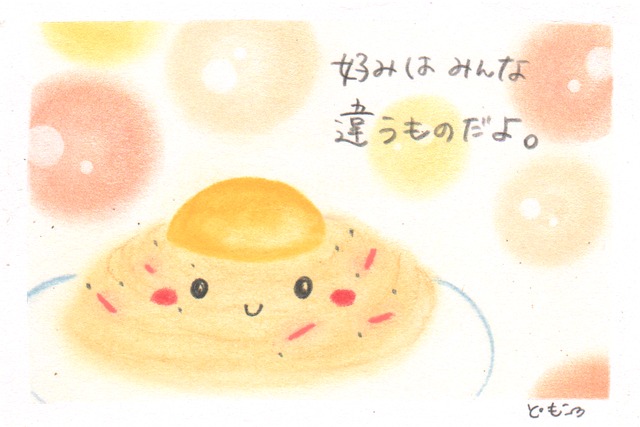 好みはみんな
違うものだよ。
ともころ